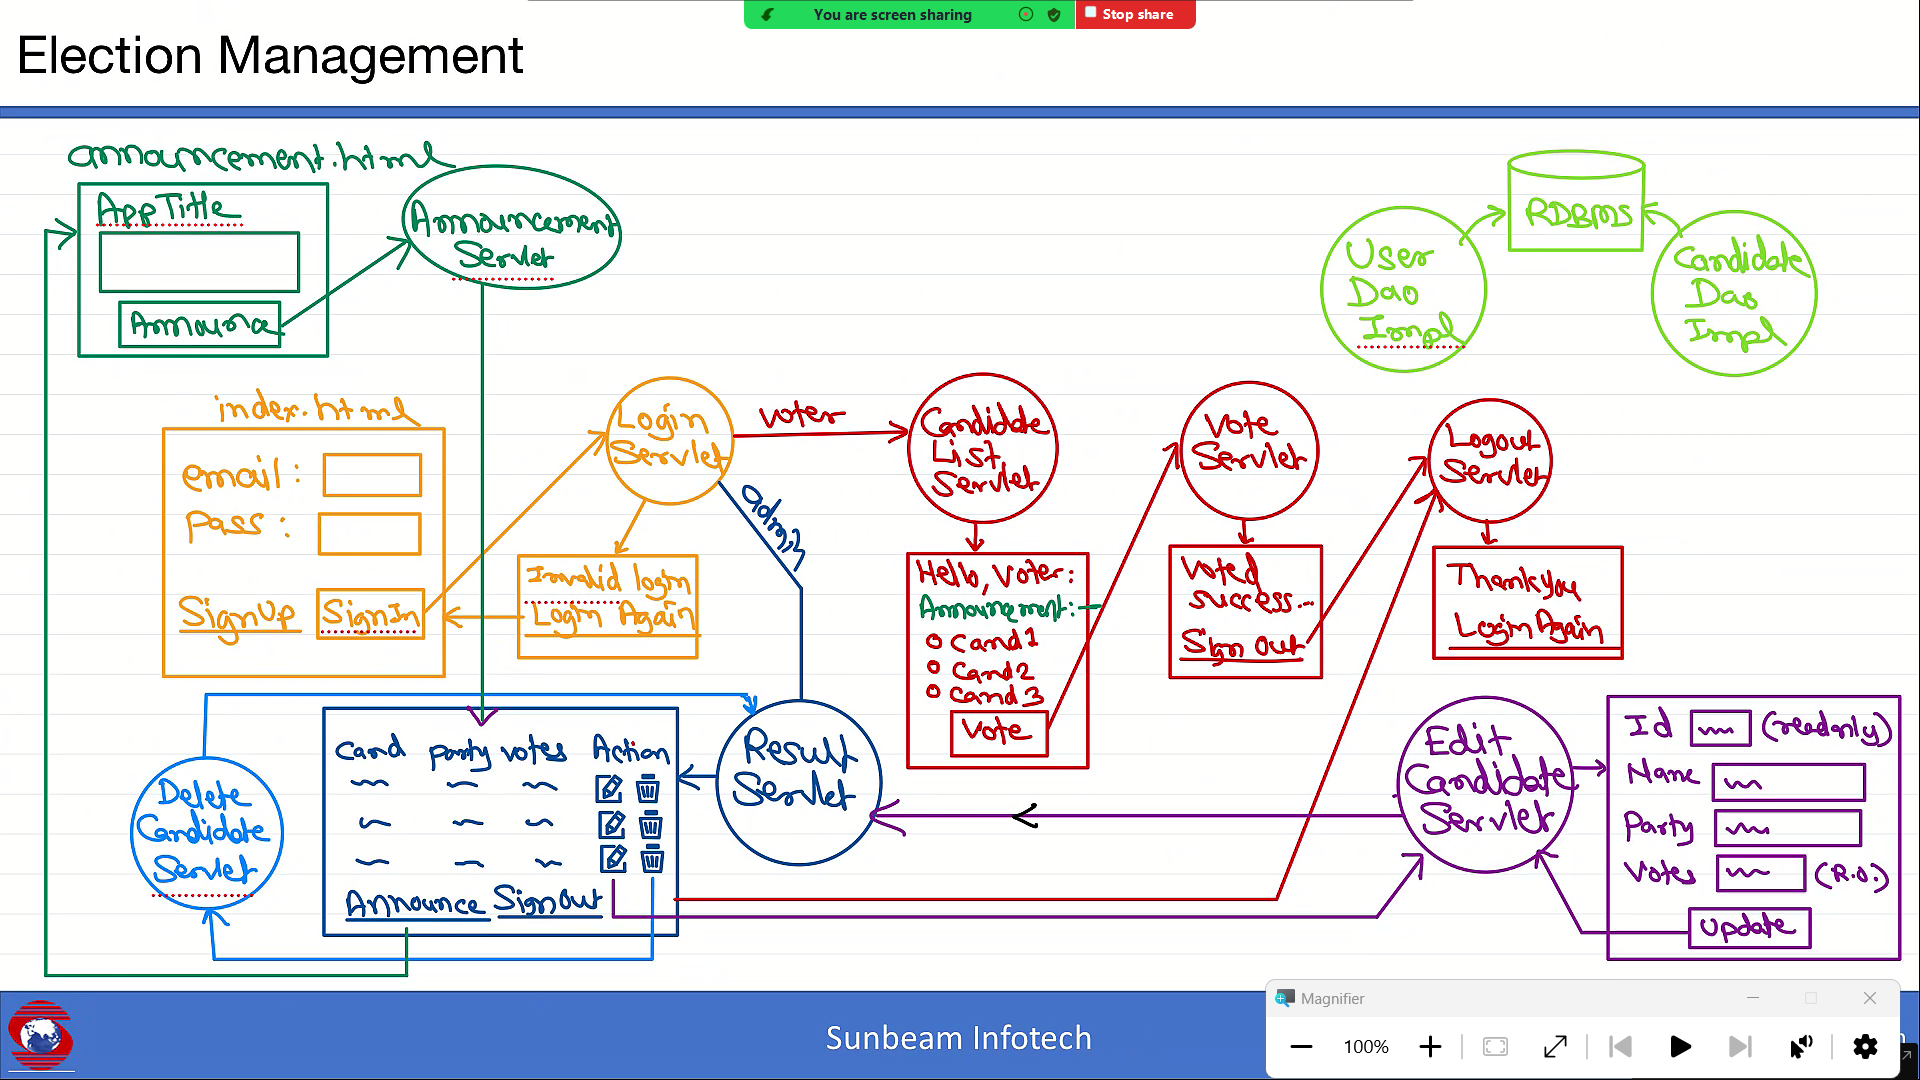 You are screen sharing
Stop share
Election Management
announcement.html
App Title
Announce
Announcement
Servlet
RDBMS
User
Dao
Impl
Candidate
Dao
Impl
index.html
email :
pass :
SignUp
SignIn
Login
Servlet
voter
admin
Invalid login
Login Again
Candidate
List
Servlet
Hello, Voter:
Announcement:-
Cand1
Cand2
Cand3
Vote
Vote
Servlet
Voted
success...
Sign Out
Logout
Servlet
Thankyou
Login Again
Delete
Candidate
Servlet
cand party votes Action
Announce SignOut
Result
Servlet
Edit
Candidate
Servlet
Id (readonly)
Name
Party
Votes (R.O.)
Update
Sunbeam Infotech
Magnifier
100%